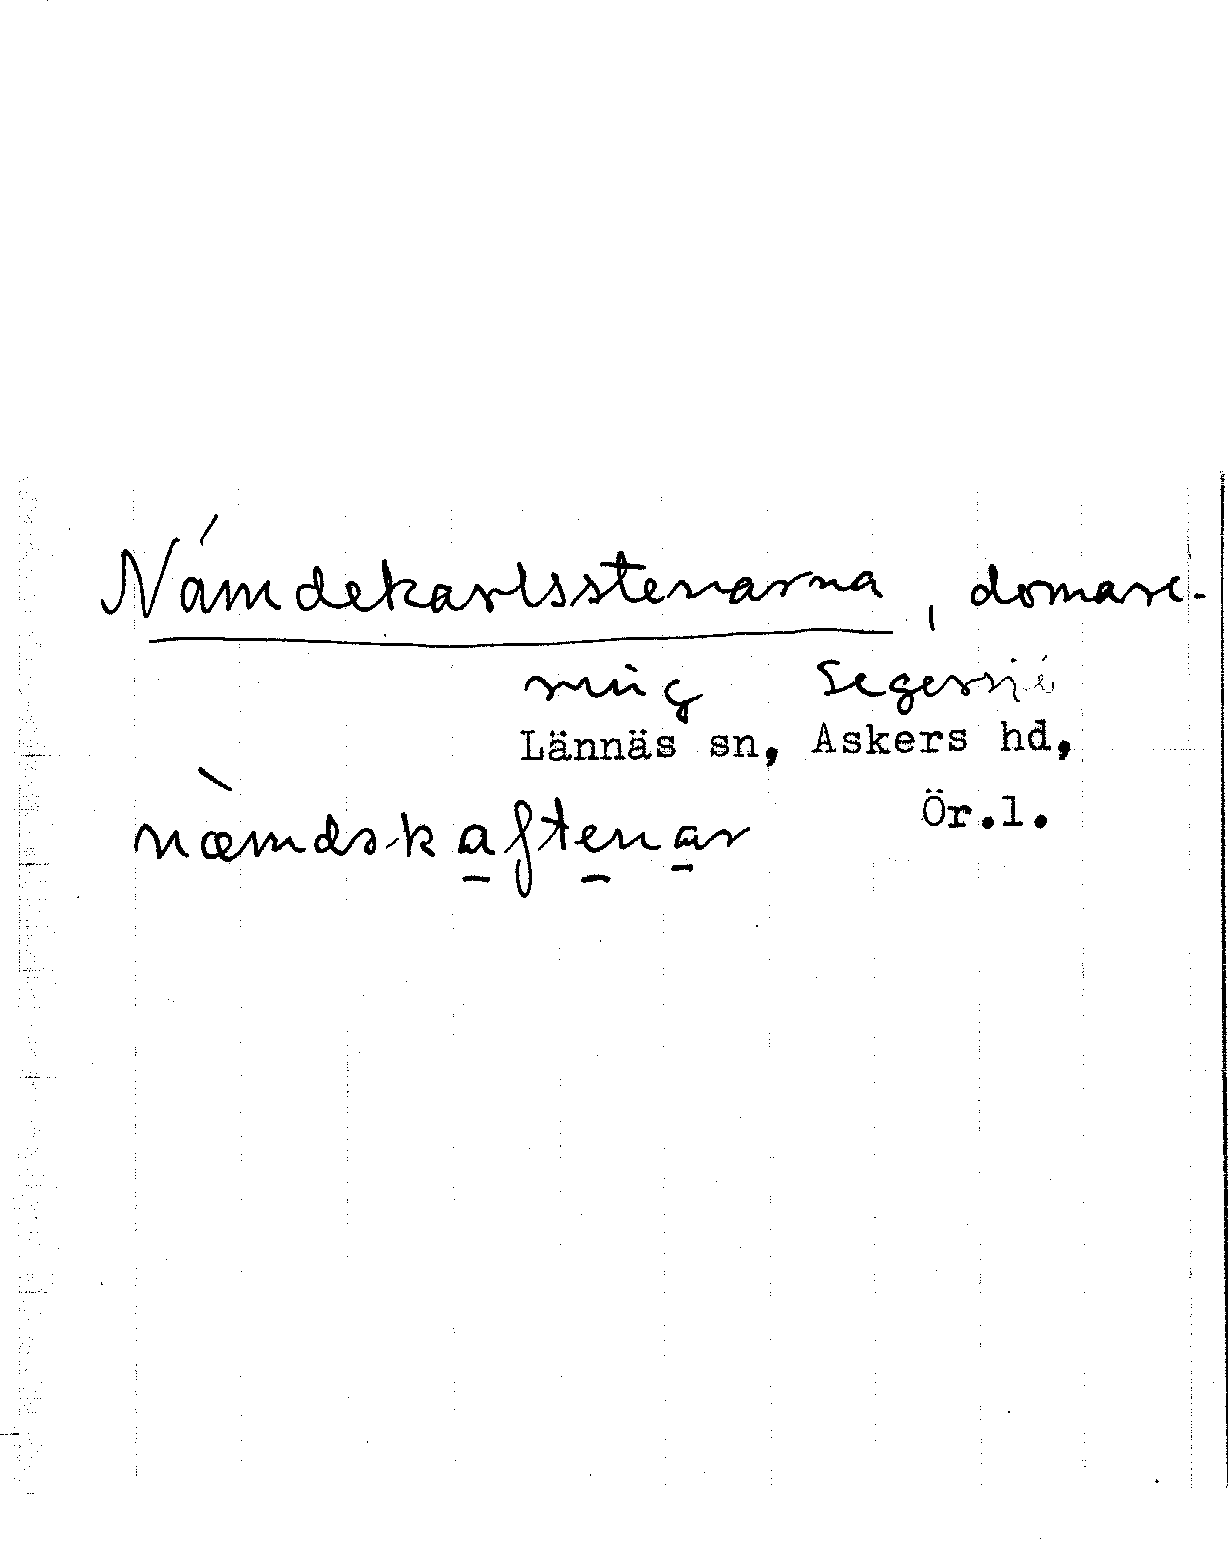 Námdekarlsstenarna, domare-
ring Segersjö
Lännäs sn, Askers hd,
Ör.l.
næ̀mdskaftenar